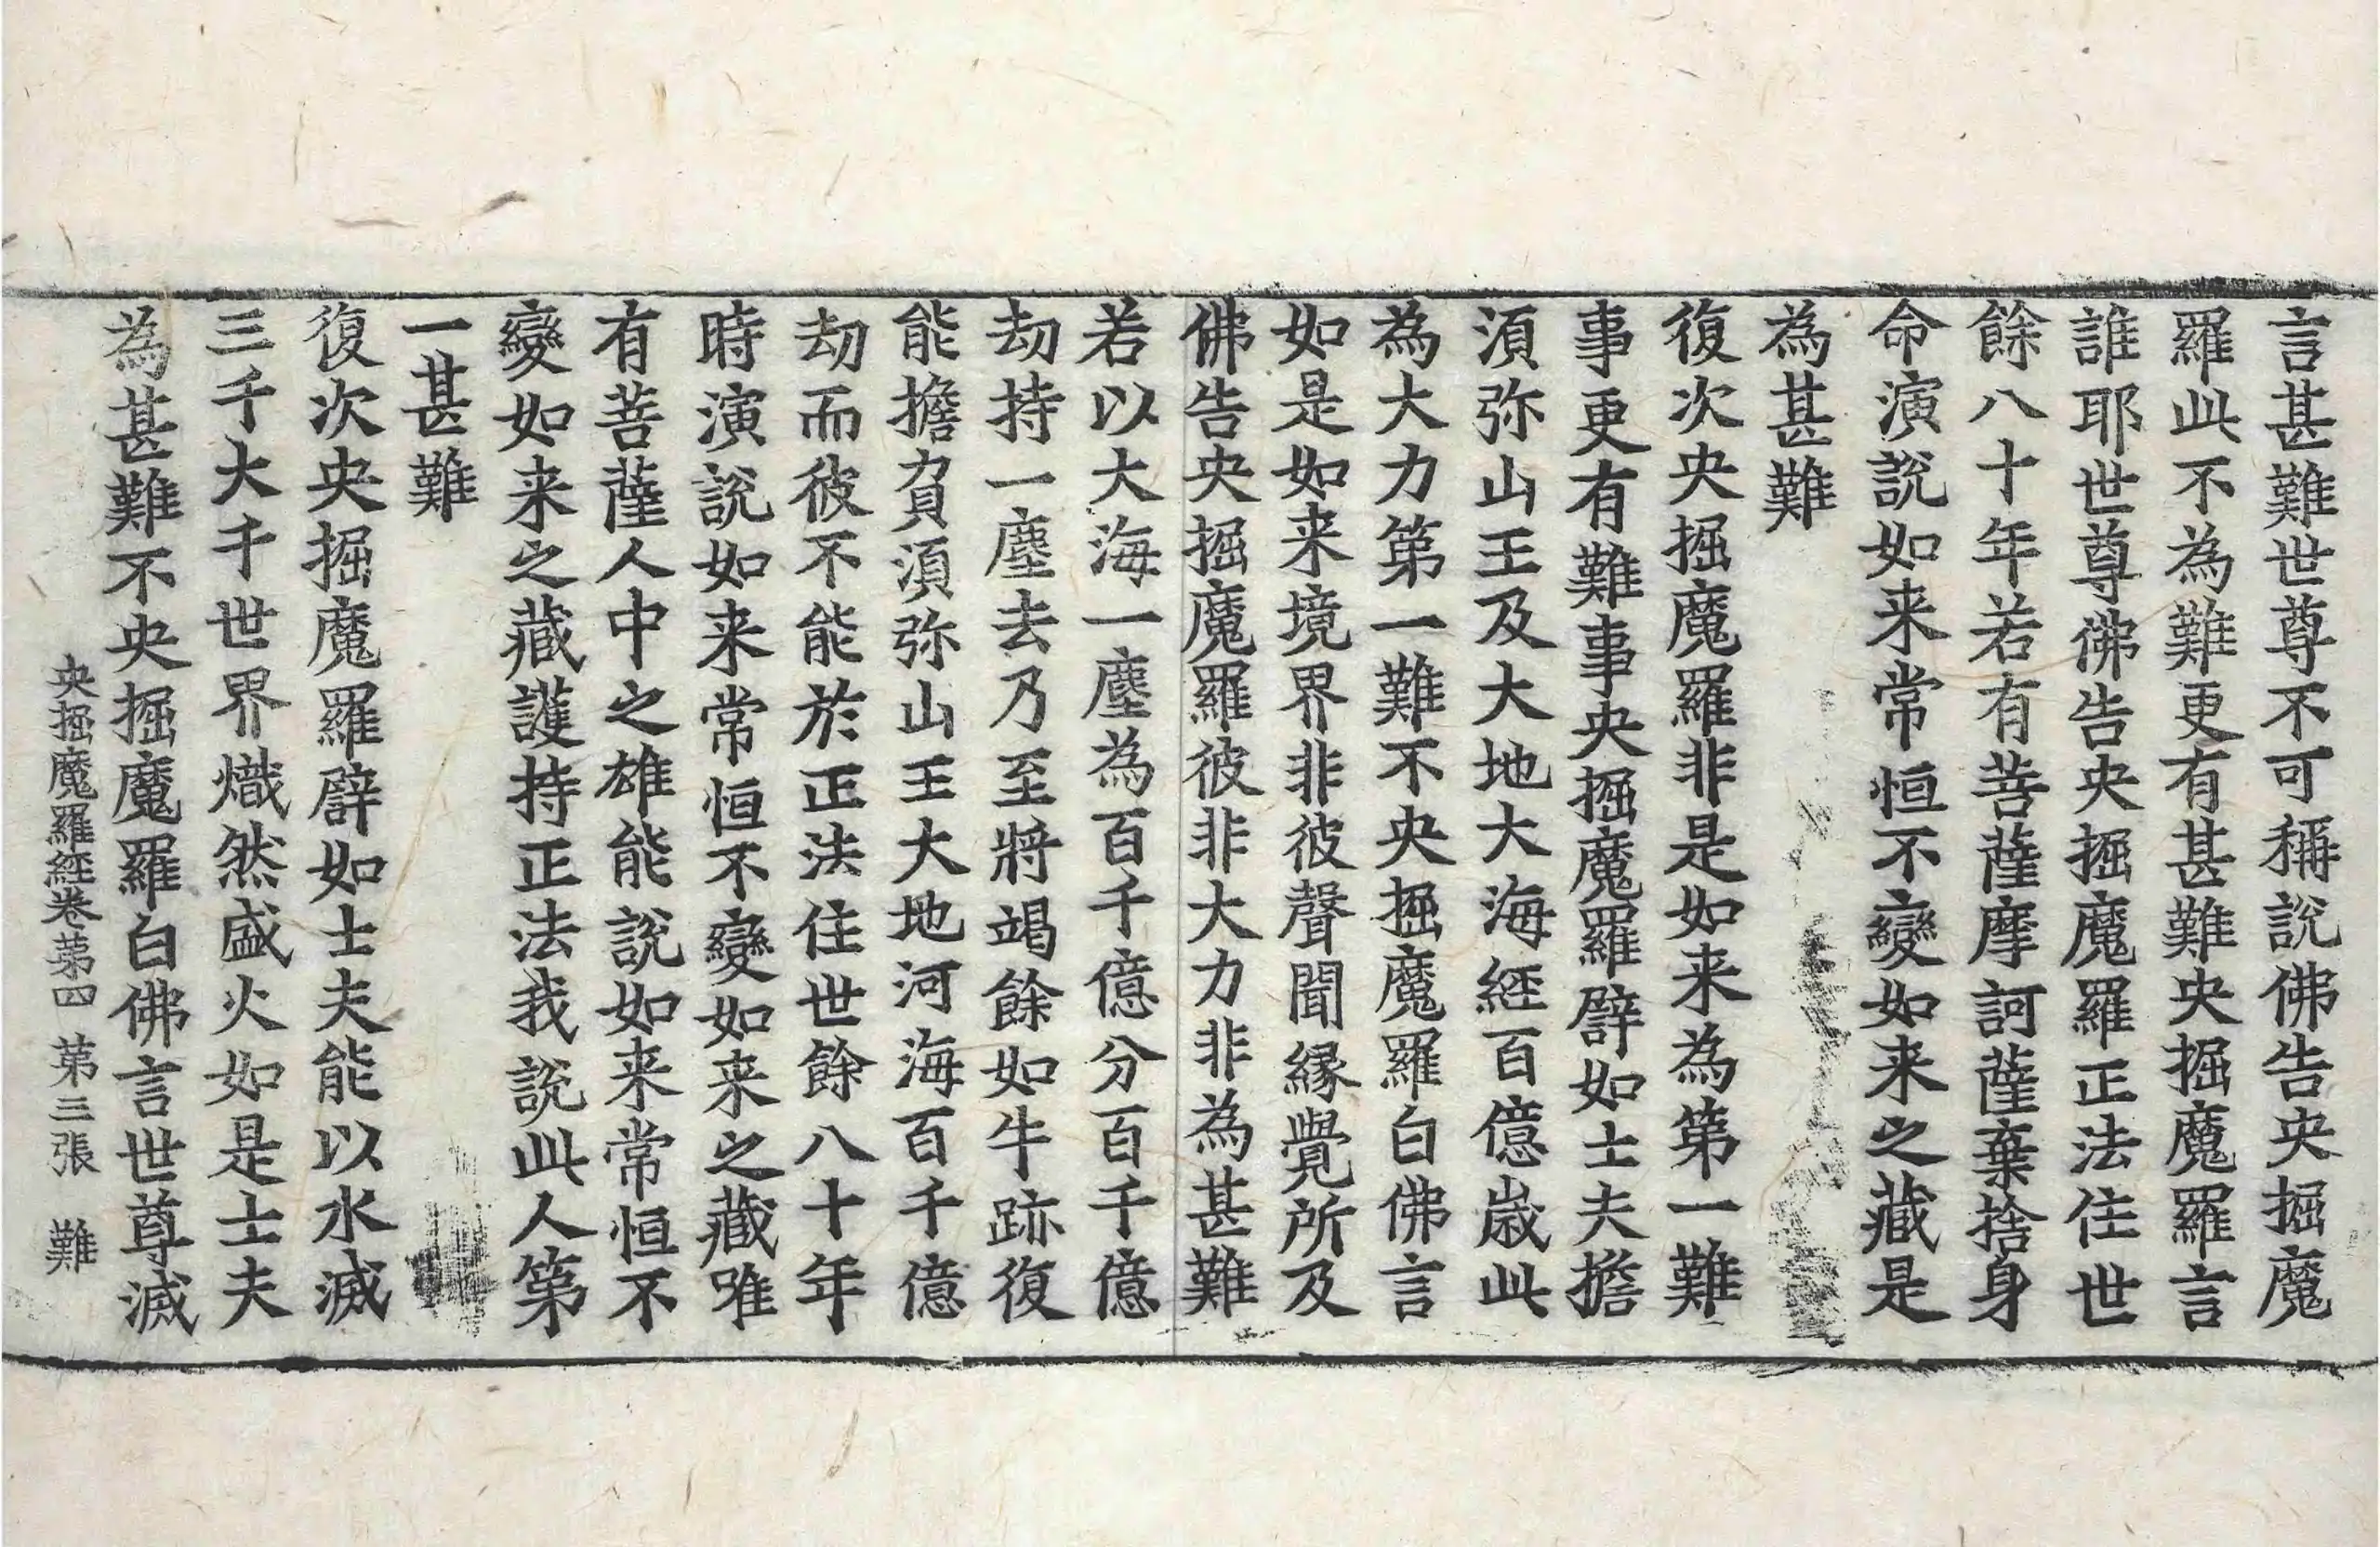 言甚難世尊不可稱說佛告央掘魔
羅此不為難更有甚難央掘魔羅言
誰耶世尊佛告央掘魔羅正法住世
餘八十年若有菩薩摩訶薩棄捨身
命演說如来常恒不變如来之藏是
為甚難
復次央掘魔羅非是如来為第一難
事更有難事央掘魔羅譬如士夫擔
湏弥山王及大地大海經百億嵗此
為大力第一難不央掘魔羅白佛言
如是如来境界非彼聲聞縁覺所及
佛告央掘魔羅彼非大力非為甚難
若以大海一塵為百千億分百千億
劫持一塵去乃至將竭餘如牛跡復
能擔負湏弥山王大地河海百千億
劫而彼不能於正法住世餘八十年
時演說如来常恒不變如来之藏唯
有菩薩人中之雄能說如来常恒不
變如来之藏護持正法我說此人第
一甚難
復次央掘魔羅譬如士夫能以水滅
三千大千世界熾然盛火如是士夫
為甚難不央掘魔羅白佛言世尊滅
央掘魔羅經卷第四 第三張 難